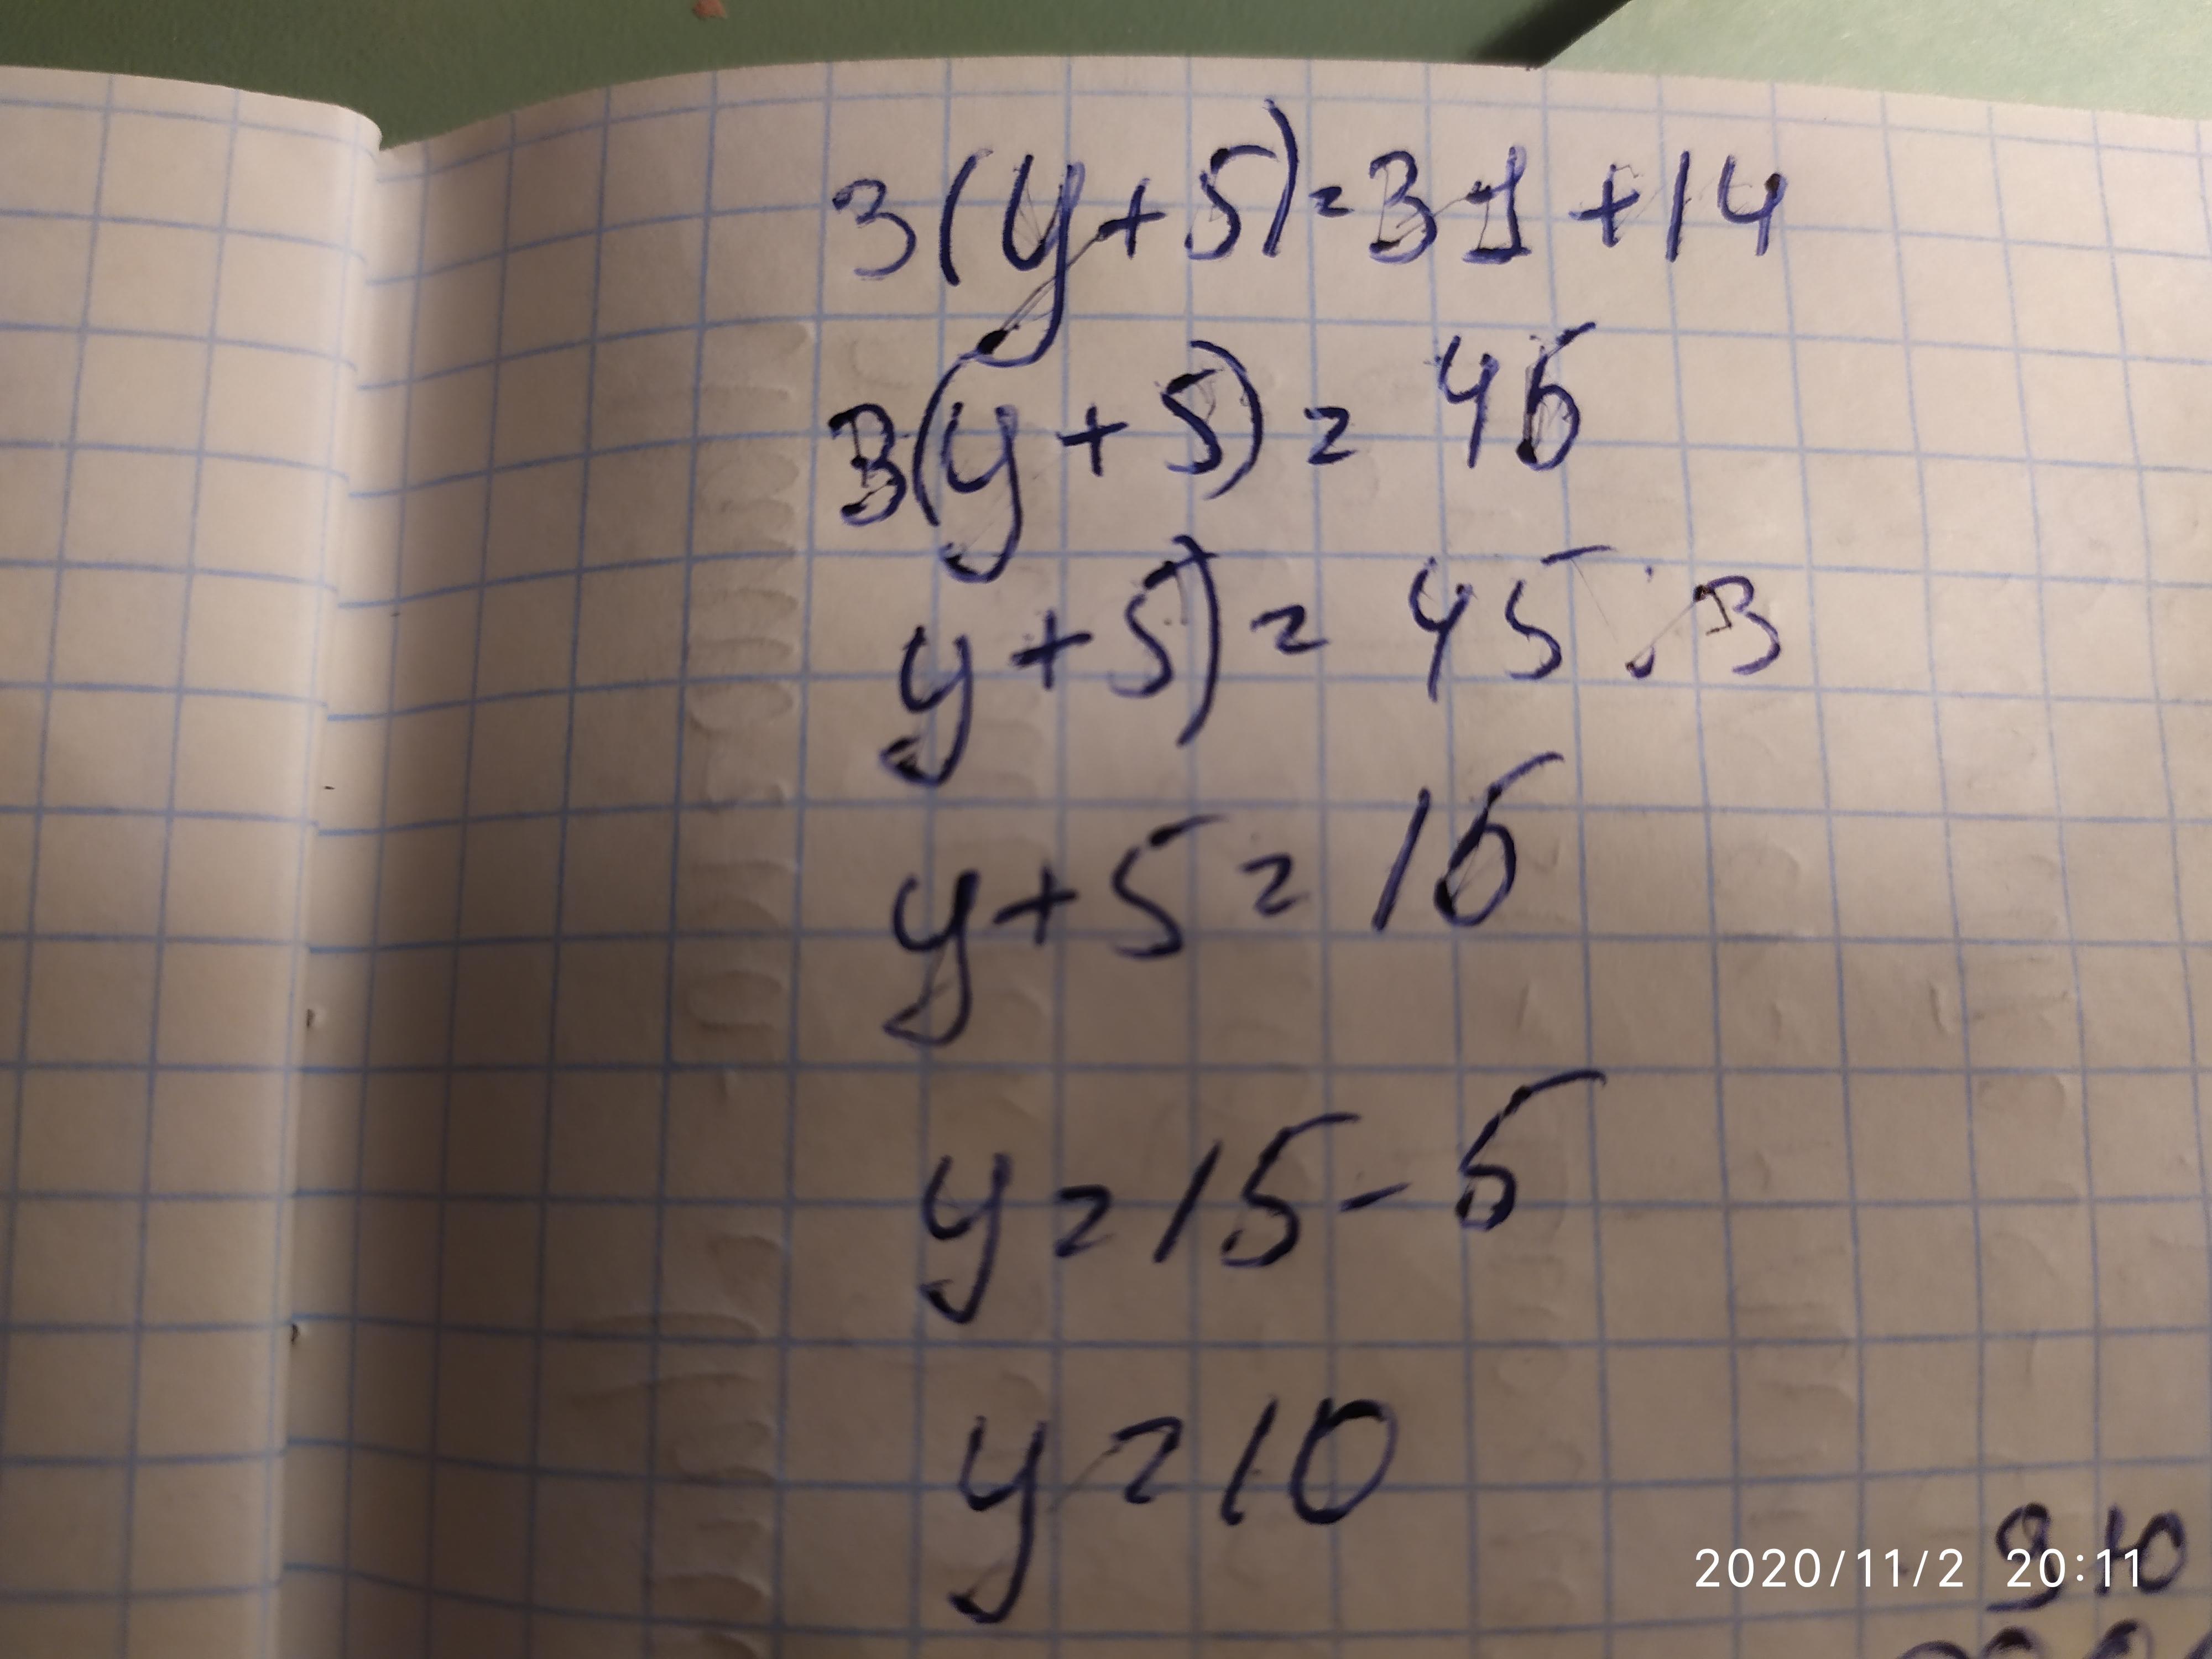 3(y+5)=31+14
3(y+5)=45
y+5)=45:3
y+5=15
y=15-5
y=10
810
2020/11/2 20:11